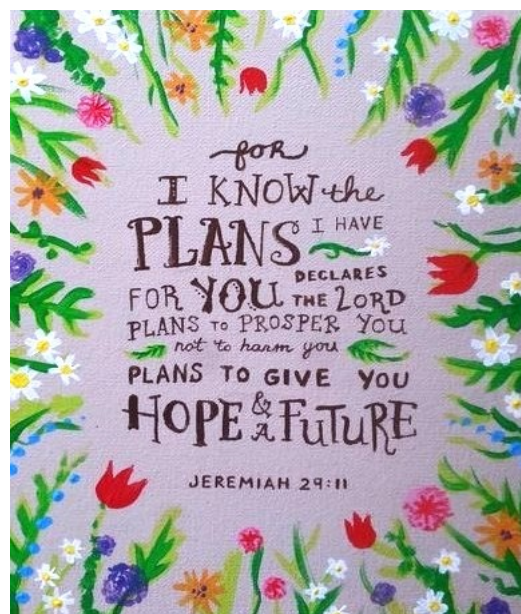 for
I KNOW the
PLANS I HAVE
FOR YOU DECLARES THE LORD
PLANS TO PROSPER YOU
not to harm you
PLANS TO GIVE YOU
HOPE & A FUTURE
JEREMIAH 29:11